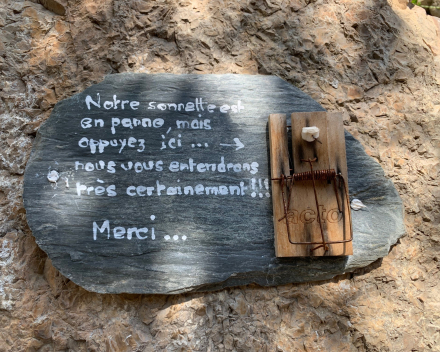 Notre sonnette est
en panne, mais
appuyez ici ... →
nous vous entendrons
très certainement !!!
Merci ...
acto